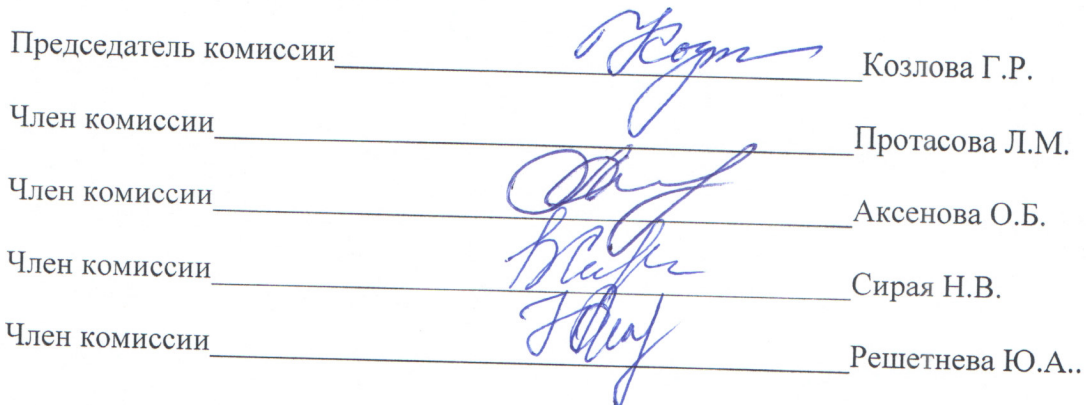 Председатель комиссии Козлова Г.Р.
Член комиссии Протасова Л.М.
Член комиссии Аксенова О.Б.
Член комиссии Сирая Н.В.
Член комиссии Решетнева Ю.А..